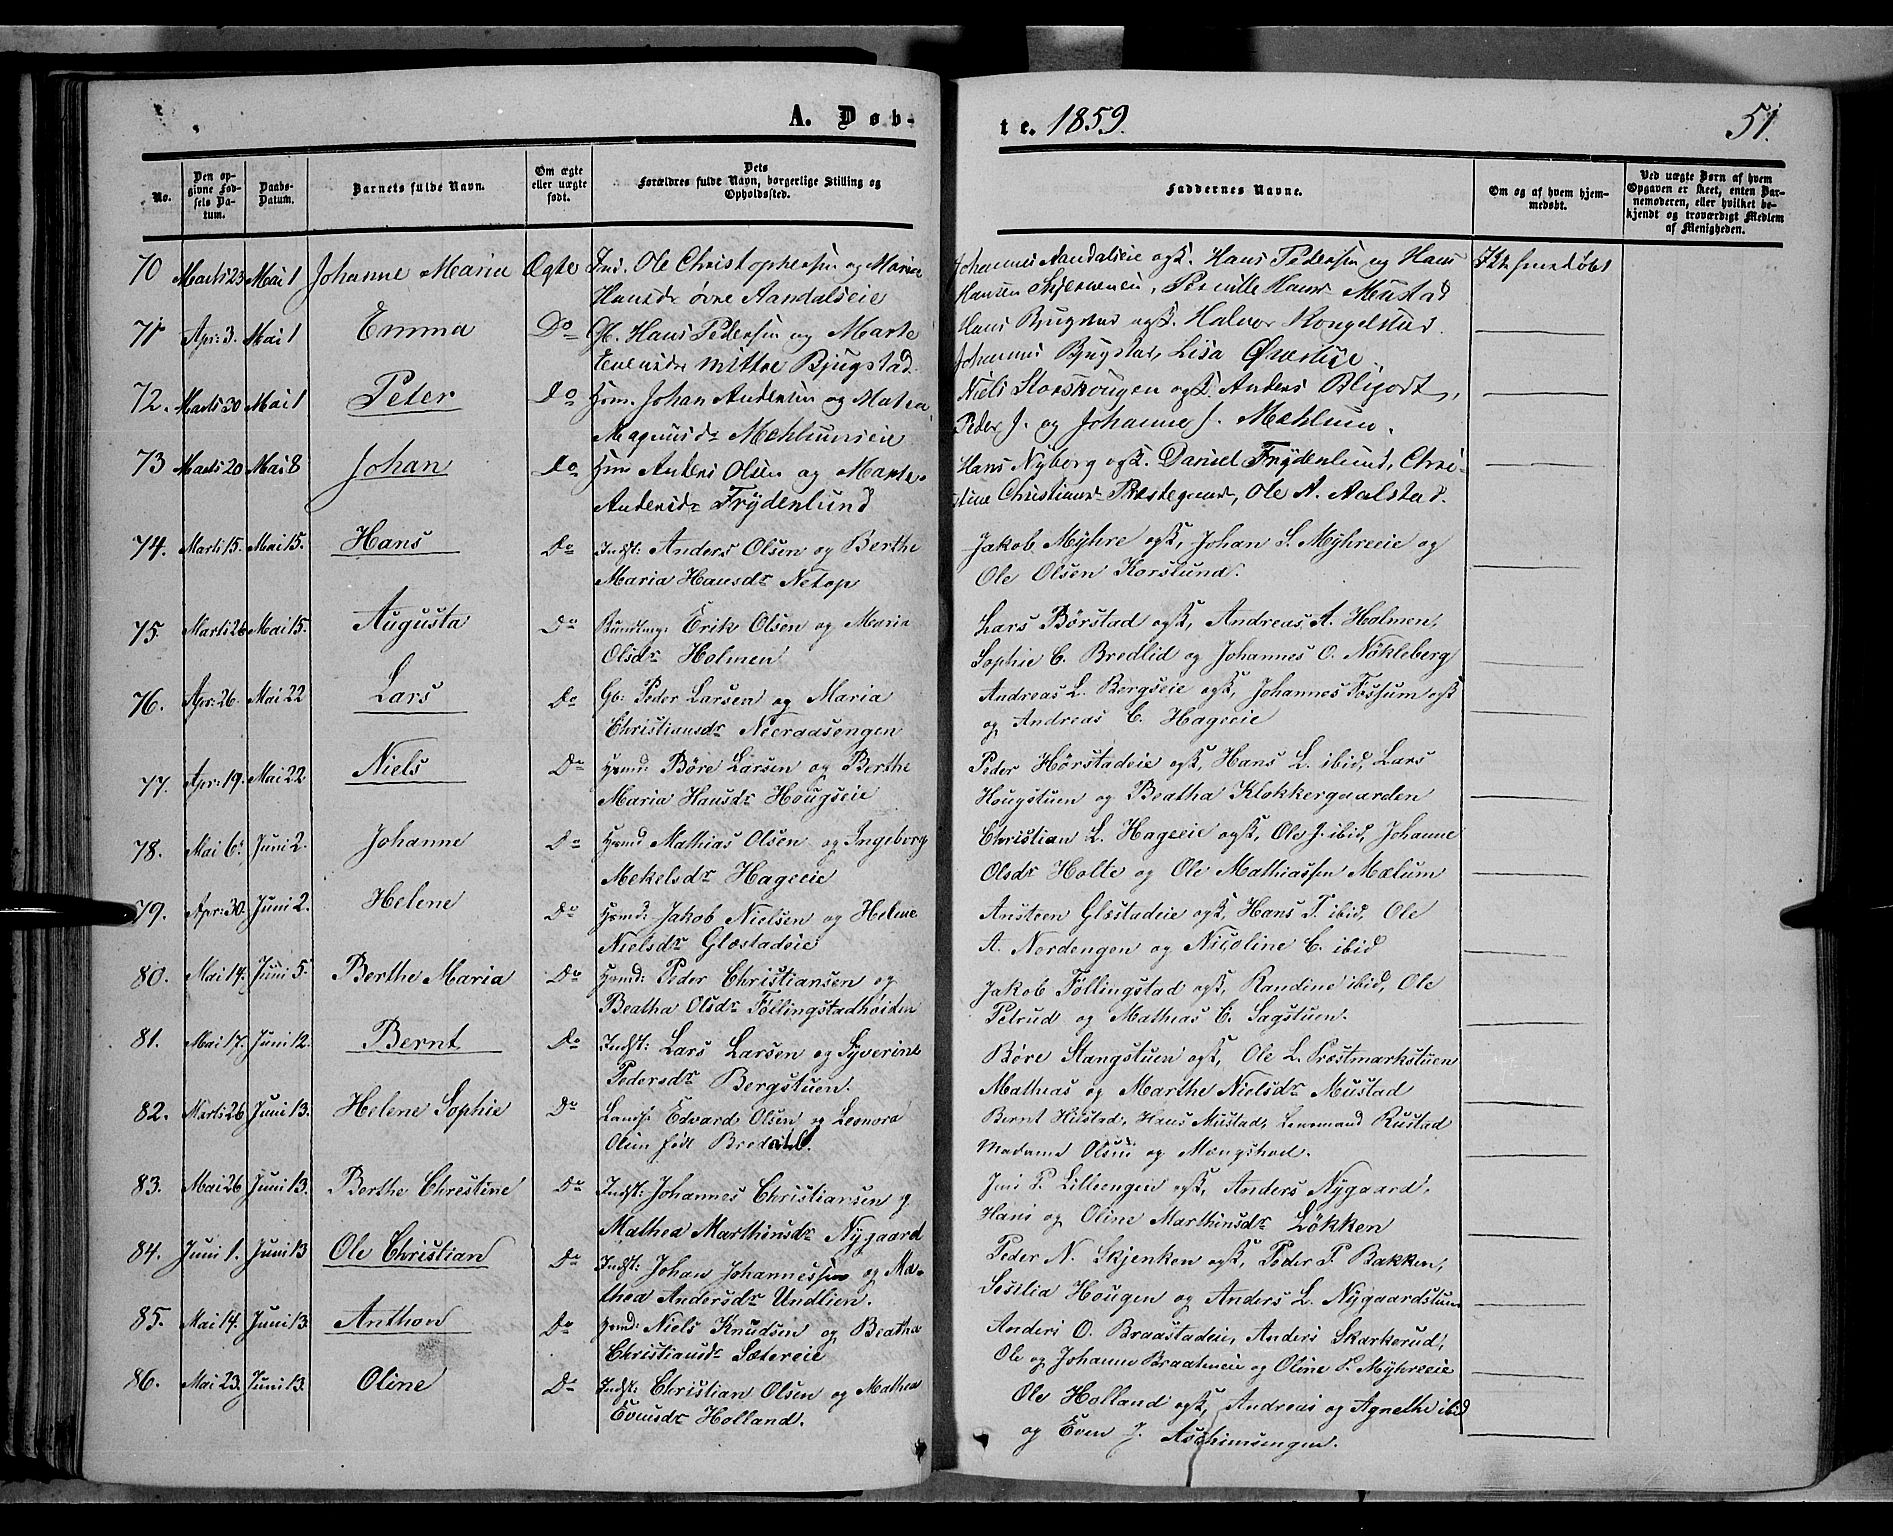 A. Døb-
te. 1859. 51.
No.
Den op-
givne Fød-
sels Da-
tum.
Daabs-
Datum.
Barnets fulde Navn.
Om ægte
eller uægte
født.
Dets
Forældres fulde Navn, borgerlige Stilling og
Opholdssted.
Faddernes Navne.
Om og af hvem hjem-
medøbt.
Ved uægte Børn af hvem
Opgaven er skeet, enten Bar-
nemoderen, eller hvilket be-
kjendt og troværdigt Medlem
af Menigheden.
70 Marts 23 Mai 1 Johanne Maria Ægte Ole Christophersen og Maria
Hansdr øvre Aandalseie
Johannes Aandalseie ogK. Hans Pedersen og Hans
Hansen Skjerveneu, Pernille Hansdr Mustad
71 Apr: 3. Mai 1 Emma Do Gb. Hans Pedersen og Marte
Evensdr mittre Bjugstad
Hans Bjugstad ogK. Halvor Kongelstad.
Johannes Bjugstad, Lisa Øverlie.
72. Marts 30 Mai 1 Peter do Hsm. Johan Andersen og Mathea
Magnusdr Mæhlumseie
Niels Storskougen ogK. Anders Bligodt,
Peder J. og Johanne J. Mæhlum.
73 Marts 20 Mai 8 Johan do Hsm Anders Olsen og Marte
Andersdr Frydenlund
Hans Nyberg ogK. Daniel Frydenlund, Chri-
stine Christiansdr Prestegaard, Ole A. Aalstad.
74. Marts 15. Mai 15. Hans Do Indst: Anders Olsen og Berthe
Maria Hansdr Netop
Jakob Myhre ogK, Johan S. Myhreeie og
Ole Olsen Korslund.
75. Marts 26 Mai 15. Augusta Do Erik Olsen og Maria
Olsdr Holmen
Lars Børstad ogK, Andreas A. Holmen,
Sophie C. Bredlid og Johannes O. Nøkleberg
76. Apr: 26. Mai 22 Lars Do Gb: Peder Larsen og Maria
Christiansdr Neeraasengen
Andreas L. Bergseie ogK, Johannes Fossum ogK
og Andreas C. Hageeie
77. Apr: 19. Mai 22 Niels Do Hsmd: Børe Larsen og Berthe
Maria Hansdr Hougseie
Peder Hørstadeie ogK, Hans L. ibid, Lars
Hougstuen og Beatha Klokkergaarden
78. Mai 6. Juni 2. Johanne Do Hsmd Mathias Olsen og Ingeborg
Mekelsdr Hageeie
Christian L. Hageeie ogK, Ole J. ibid, Johanne
Olsdr Holte og Ole Mathiassen Mælum
79. Apr: 30. Juni 2. Helene Do Hsmd: Jakob Nielsen og Helene
Nielsdr Glæstadeie
Ansteen Glæstadeie ogK, Hans T. ibid, Ole
A. Nordengen og Nicoline C. ibid
80. Mai 14. Juni 5. Berthe Maria Do Hsmd: Peder Christiansen og
Beatha Olsdr Føllingstadhøiden
Jakob Føllingstad ogK, Randine ibid, Ole
Petrud og Mathias C. Sagstuen.
81. Mai 17. Juni 12. Bernt Do Indst: Lars Larsen og Syverine
Pedersdr Bergstuen.
Børe Stangstuen ogK, Ole L. Præstmarkstuen
Mathias og Marthe Nielsdr Mustad
82. Marts 26 Juni 13. Helene Sophie Do Edvard Olsen og Leonora
Olsen født Bredahl.
Bernt Hustad, Hans Mustad, Lensmand Rustad
Madame Olsen og Mængshoel.
83. Mai 26 Juni 13. Berthe Christine Do Indst: Johannes Christiansen og
Mathea Marthinusdr Nygaard
Jens P. Lilleengen ogK, Anders Nygaard,
Hans og Oline Marthinusdr Løkken
84. Juni 1. Juni 13 Ole Christian Do Indst: Johan Johannessen og Ma-
thea Andersdr Undlien.
Peder N. Skjenken ogK, Peder P. Bakken,
Sesilia Hougen og Anders L. Nygaardstuen
85. Mai 14. Juni 13. Anthon Do Hsmd: Niels Knudsen og Beatha
Christiansdr Sætereie
Anders O. Braastadeie, Anders Skarkerud,
Ole og Johanne Braateneie og Oline P. Myhreeie
86. Mai 23. Juni 13. Oline Do Indst: Christian Olsen og Mathea
Evensdr Holland.
Ole Holland ogK, Andreas og Agnethe ibid
og Even J. Aschimsengen.